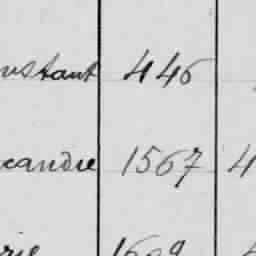 nstant 446
xandre 1567 4
rie 1609